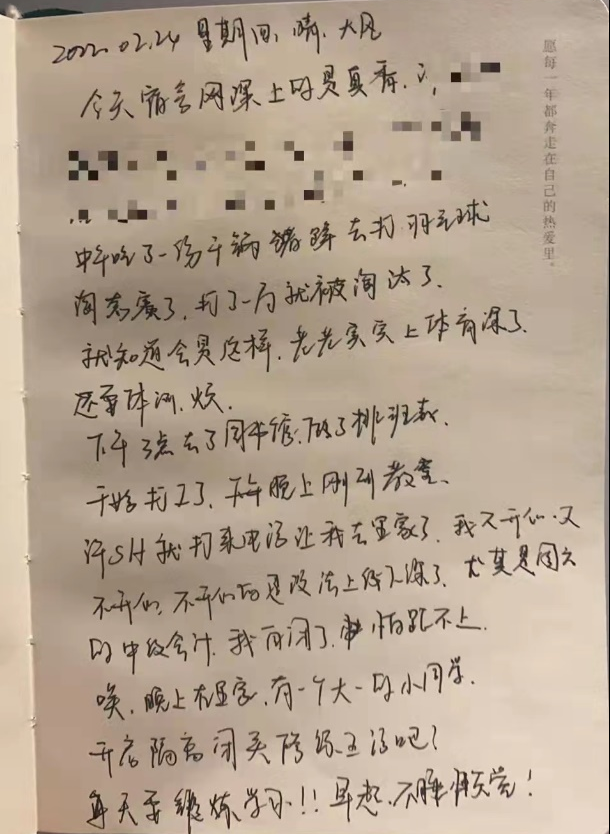 2022.02.24 星期四，晴，大风
今天宿舍网课上的是真香，
中午吃了一份干锅 去打羽毛球
淘汰赛了，打了一局就被淘汰了，
就知道会是这样，老老实实上体育课了
还要体测，烦，
下午3点去了图书馆，做了排班表，
开始打工了，晚上刚到教室，
许SH就打来电话让我去 了，我又开心又
不开心，不开心的是没法上线下课了，尤其是周六
的中级会计，我再闭了，怕跟不上，
唉，晚上在 ，有一个大一的小同学，
开启隔离闭关修炼生活吧！
每天要锻炼学习！！早起，不睡懒觉！
愿每一年都奔走在自己的热爱里。